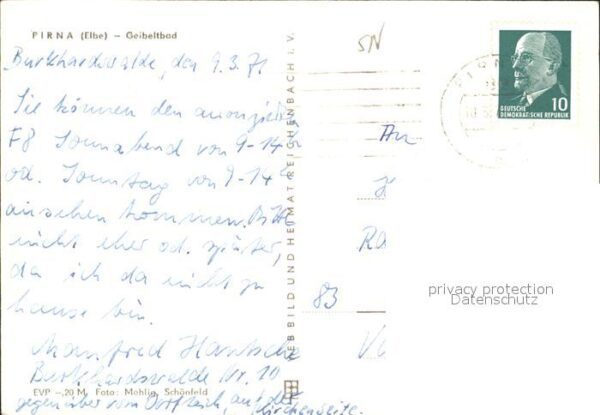 PIRNA (Elbe) – Geibeltbad
Burkhardswalde, den 9.3.71
Sie können den
F8 Sonnabend von 9-14h
od. Sonntag von 9-14h
ansehen kommen. Bitte
nicht eher od. später,
da ich da nicht zu
hause bin.
Manfred Hantsche
Burkhardswalde Nr. 10
gegenüber vom Dorfteich, auf der
Kirchenseite.
EVP –,20 M Foto: Mehlig, Schönfeld
VEB BILD UND HEIMAT REICHENBACH i. V.
SN
DEUTSCHE 10
DEMOKRATISCHE REPUBLIK
PIRN
An
Ra
83
privacy protection
Datenschutz